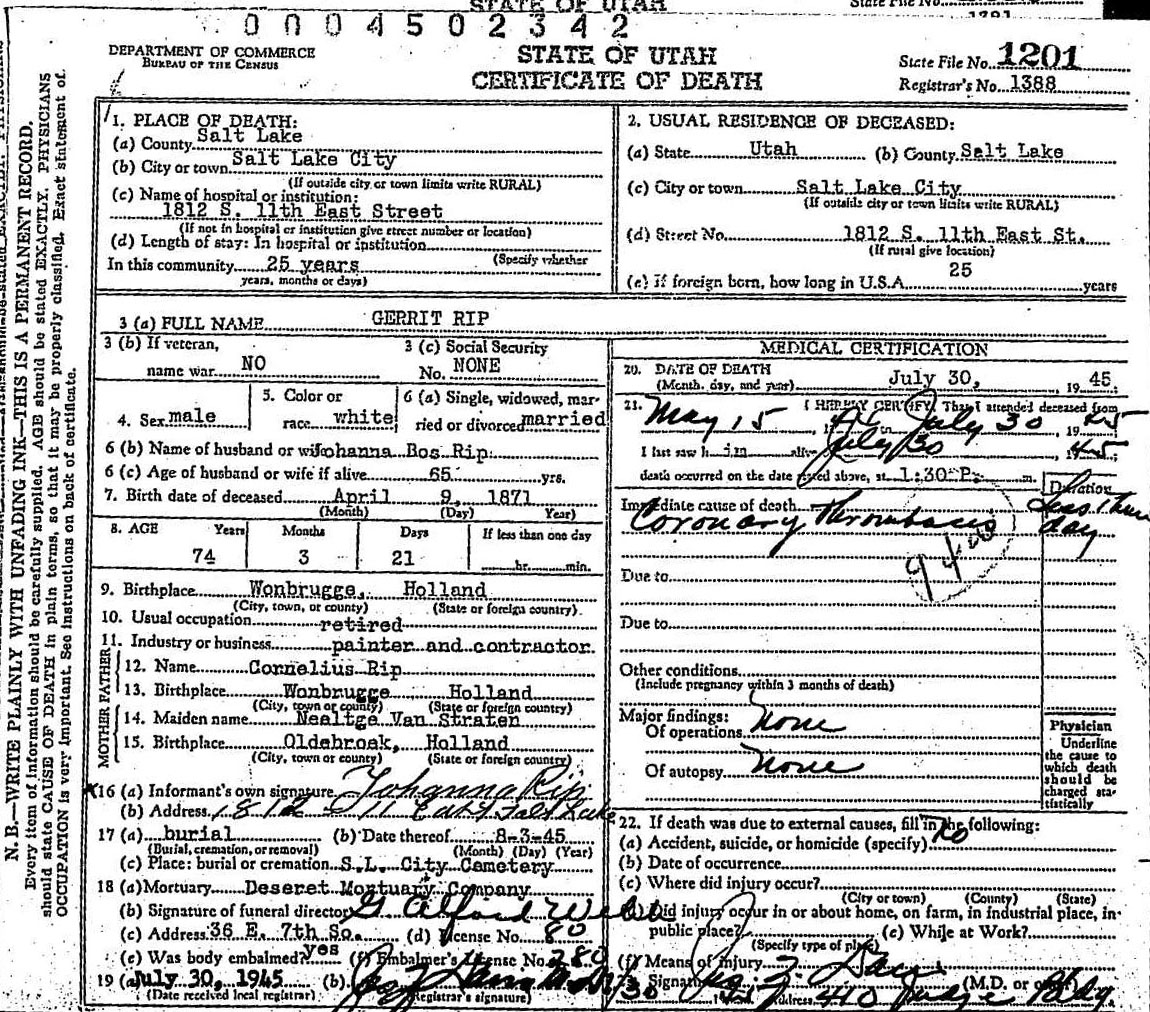 STATE OF UTAH
State File No.
0004502342
DEPARTMENT OF COMMERCE
BUREAU OF THE CENSUS
STATE OF UTAH
CERTIFICATE OF DEATH
State File No. 1201
Registrar's No. 1388
N. B.—WRITE PLAINLY WITH UNFADING INK—THIS IS A PERMANENT RECORD.
Every item of information should be carefully supplied. AGE should be stated EXACTLY. PHYSICIANS
should state CAUSE OF DEATH in plain terms, so that it may be properly classified. Exact statement of
OCCUPATION is very important. See instructions on back of certificate.
1. PLACE OF DEATH:
(a) County Salt Lake
(b) City or town Salt Lake City
(If outside city or town limits write RURAL)
(c) Name of hospital or institution:
1812 S. 11th East Street
(If not in hospital or institution give street number or location)
(d) Length of stay: In hospital or institution
(Specify whether
In this community 25 years
years, months or days)
2. USUAL RESIDENCE OF DECEASED:
(a) State Utah (b) County Salt Lake
(c) City or town Salt Lake City
(If outside city or town limits write RURAL)
(d) Street No. 1812 S. 11th East St.
(If rural give location)
(e) If foreign born, how long in U.S.A. 25 years
3 (a) FULL NAME GERRIT RIP
3 (b) If veteran,
name war NO
3 (c) Social Security
No. NONE
4. Sex male
5. Color or
race white
6 (a) Single, widowed, mar-
ried or divorced married
6 (b) Name of husband or wife Johanna Bos Rip
6 (c) Age of husband or wife if alive 65 yrs.
7. Birth date of deceased April 9, 1871
(Month) (Day) Year)
8. AGE Years Months Days If less than one day
74 3 21 hr. min.
9. Birthplace Wonbrugge, Holland
(City, town, or county) (State or foreign country)
10. Usual occupation retired
11. Industry or business painter and contractor
FATHER
12. Name Cornelius Rip
13. Birthplace Wonbrugge Holland
(City, town or county) (State or foreign country)
MOTHER
14. Maiden name Neeltge Van Straten
15. Birthplace Oldebroek, Holland
(City, town or county) (State or foreign country)
16 (a) Informant's own signature Johanna Rip
(b) Address 1812 S 11 East Salt Lake
17 (a) burial (b) Date thereof 8-3-45
(Burial, cremation, or removal) (Month) (Day) (Year)
(c) Place: burial or cremation S.L. City Cemetery
18 (a) Mortuary Deseret Mortuary Company
(b) Signature of funeral director G. Alford Webb
(c) Address 36 E. 7th So. (d) License No. 80
(e) Was body embalmed? yes (f) Embalmer's License No. 280
19 (a) July 30, 1945 (b)
(Date received local registrar) Registrar's signature)
MEDICAL CERTIFICATION
20. DATE OF DEATH
(Month, day, and year) July 30, 19 45.
21. I HEREBY CERTIFY, That I attended deceased from
May 15 to July 30, 19 45
I last saw him alive July 30 1945;
death occurred on the date stated above, at 1:30 P. m.
Duration
Immediate cause of death
Coronary thrombosis
less than
day
9400
Due to
Due to
Other conditions
(Include pregnancy within 3 months of death)
Major findings:
Of operations none
Of autopsy none
Physician
Underline
the cause to
which death
should be
charged sta-
tistically
22. If death was due to external causes, fill in the following:
(a) Accident, suicide, or homicide (specify) no
(b) Date of occurrence
(c) Where did injury occur?
(City or town) (County) (State)
Did injury occur in or about home, on farm, in industrial place, in
public place? (e) While at Work?
(Specify type of place)
(f) Means of injury
Signature (M.D. or other)
Address 410 Judge Bldg.